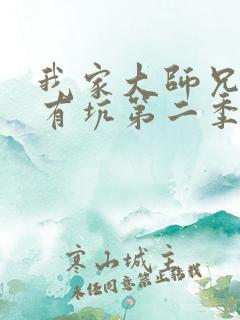 我家大师兄
有坑第二季
寒山城主
未经同意禁止转载